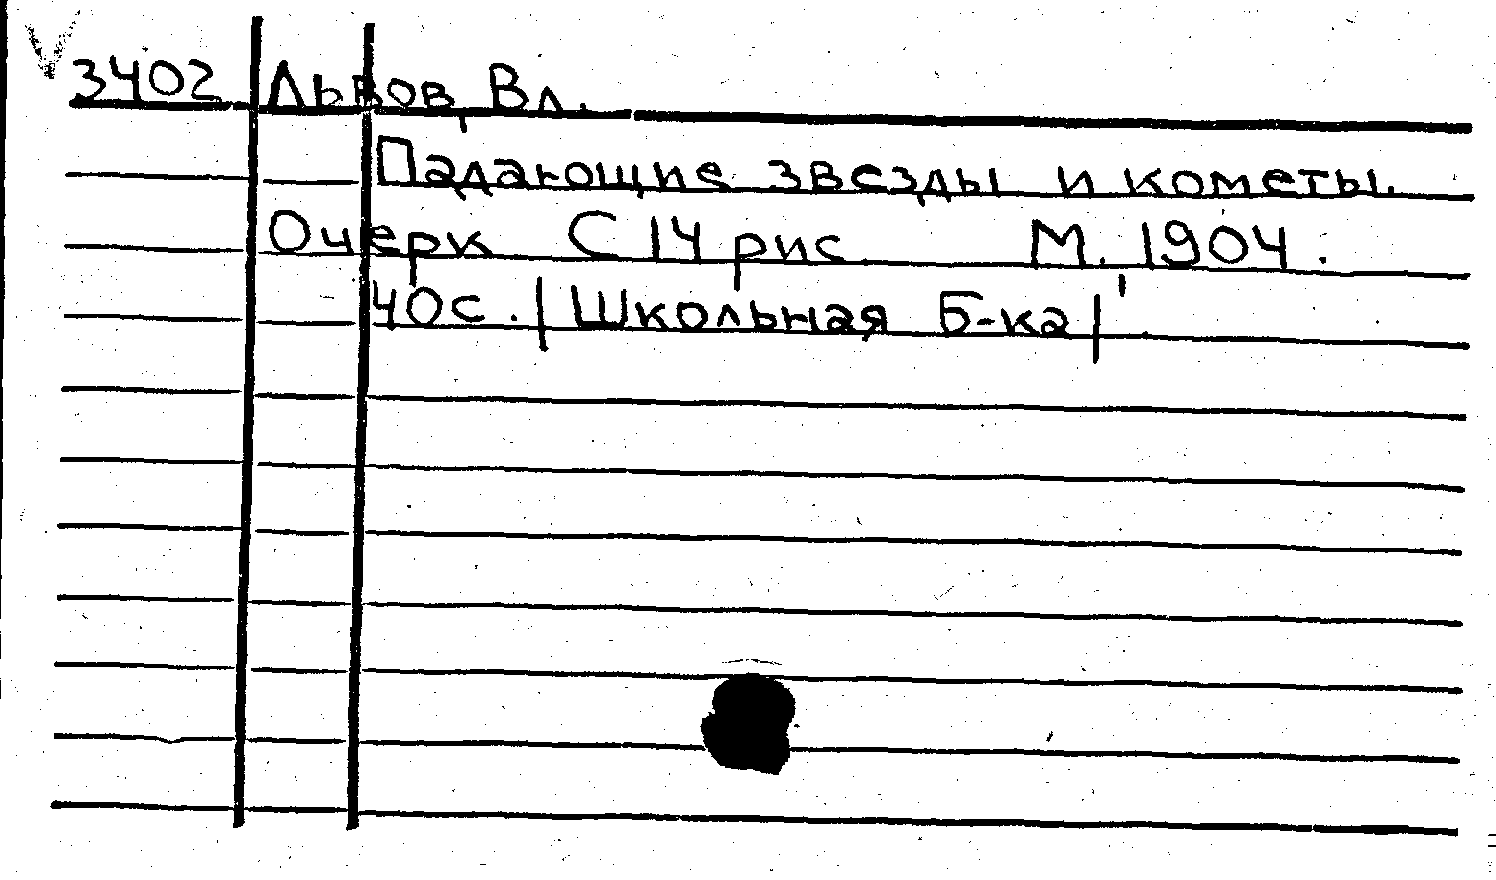 3402 Львов, Вл.
Падающие звезды и кометы.
Очерк С 14 рис М. 1904.
40с. | Школьная Б-ка |